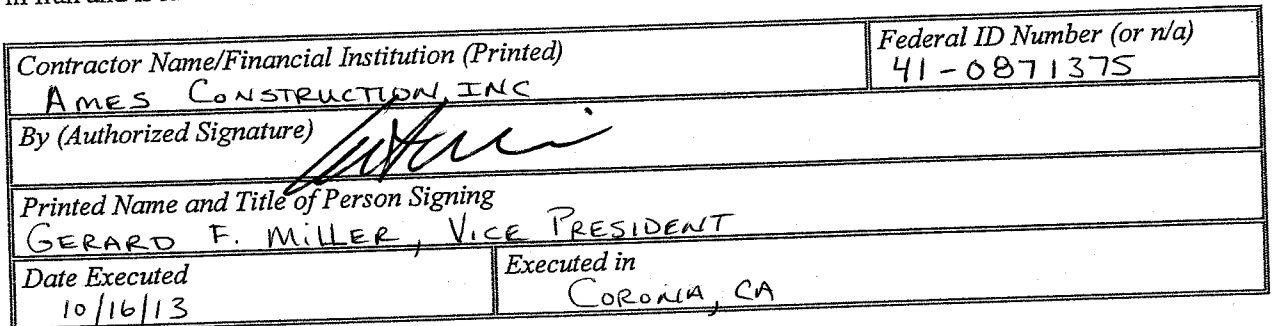 Contractor Name/Financial Institution (Printed)
AMES CONSTRUCTION, INC
Federal ID Number (or n/a)
41-0871375
By (Authorized Signature)
Printed Name and Title of Person Signing
GERARD F. MILLER, VICE PRESIDENT
Date Executed
10/16/13
Executed in
CORONA, CA